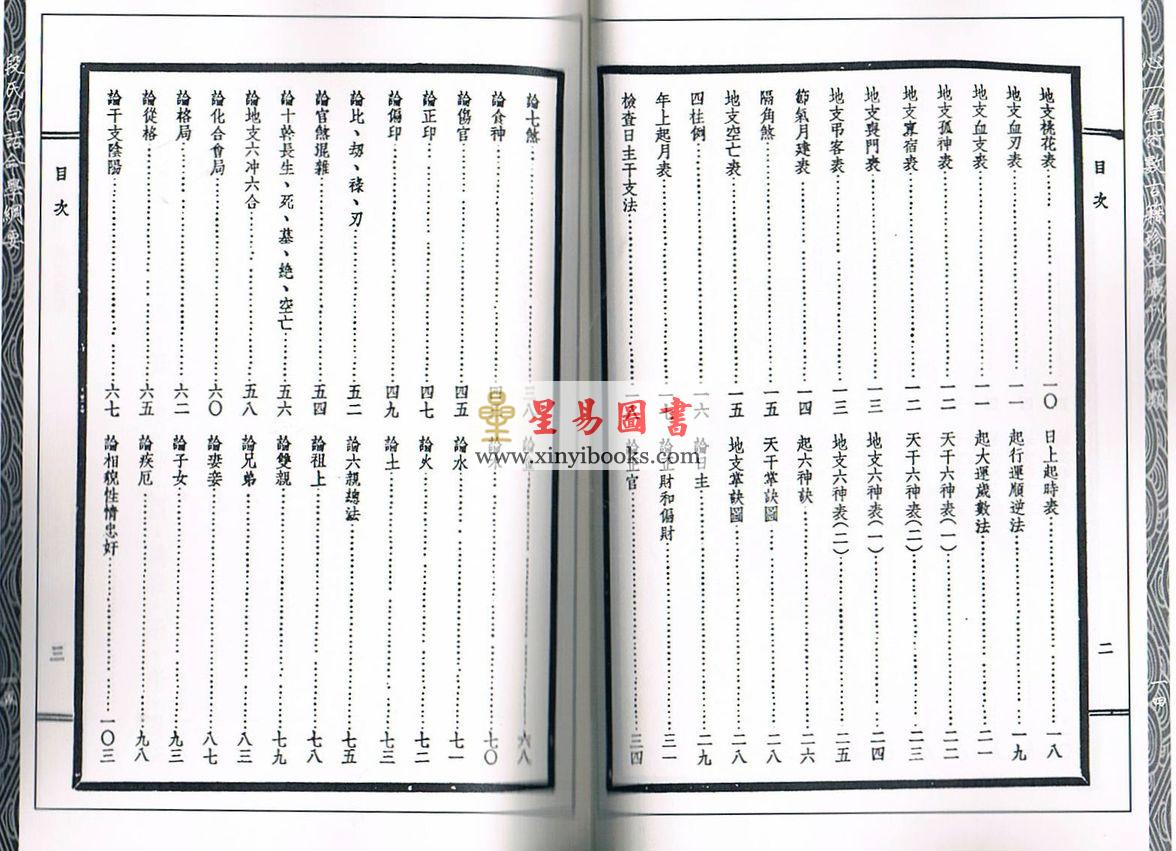 目次
二
地支桃花表……一〇
地支血刃表……一一
地支血支表……一一
地支孤神表……一二
地支寡宿表……一二
地支喪門表……一三
地支弔客表……一三
節氣月建表……一四
隔角煞……一五
地支空亡表……一五
四柱例……一六
年上起月表……一七
檢查日主干支法……一八
日上起時表……一八
起行運順逆法……一九
起大運歲數法……二一
天干六神表(一)……二二
天干六神表(二)……二三
地支六神表(一)……二四
地支六神表(二)……二五
起六神訣……二六
天干掌訣圖……二八
地支掌訣圖……二八
論日主……二九
論正財和偏財……三一
論正官……三四
段氏白話命學綱要
目次
三
論七煞……三八
論食神……四
論傷官……四五
論正印……四七
論偏印……四九
論比、劫、祿、刃……五二
論官煞混雜……五四
論十幹長生、死、墓、絶、空亡……五六
論地支六冲六合……五八
論化合會局……六〇
論格局……六二
論從格……六五
論干支陰陽……六七
論……六八
論木……七〇
論水……七一
論火……七二
論土……七三
論六親總法……七五
論祖上……七八
論雙親……七九
論兄弟……八三
論妻妾……八七
論子女……九三
論疾厄……九八
論相貌性情忠奸……一〇三
星易圖書
www.xinyibooks.com